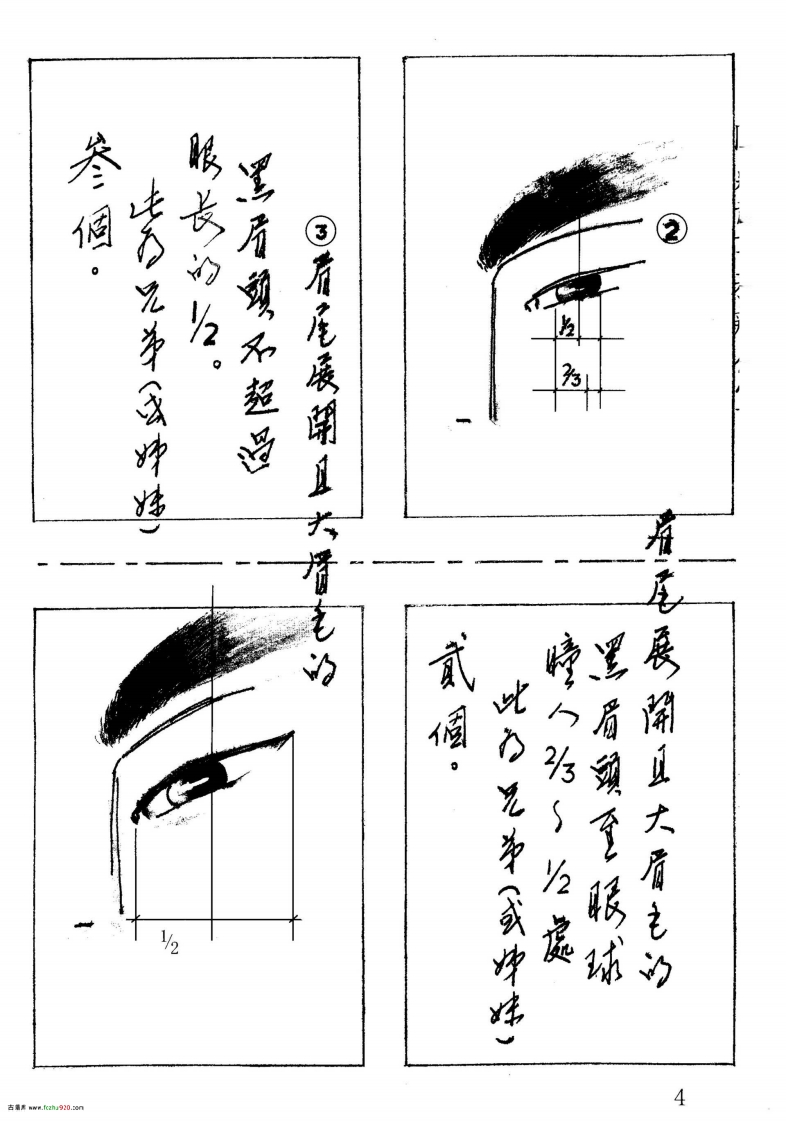 ②
1/2
2/3
眉尾展開且大眉毛的
黑眉頭至眼球
瞳人2/3～1/2處
此為兄弟(或姊妹)
貳個。
③眉尾展開且大眉毛的
黑眉頭不超過
眼長的1/2。
此為兄弟(或姊妹)
叁個。
1/2
4
www.fczhu920.com